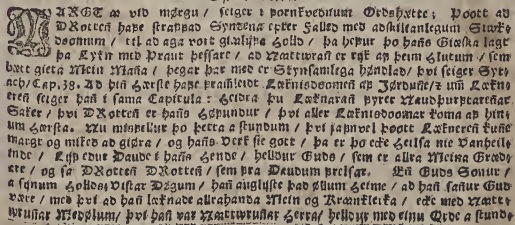 MARGT æ vid mørgu / seiger i fornkvednum Ordshætte; Þoott ad
DRotten hafe straffad Syndena epter Falled med adskilianlegum Siwk-
doomum / til ad aga vort giælijfa Holld / þa hefur þo hans Giæska lagt
þa Lykn med Þraut þessare / ad Nætturan er rijk af þeim Hlutum / sem
bætt gieta Mein Maña / þegar þar med er Skynsamlega høndlad / þvi seiger Sy-
ach/Cap. 38. Ad hiñ Hærste hafe framleidt Læknisdoomeñ af Jørduñe/
eteñ seiger hañ i sama Capitula: Heidra þu Læknarañ fyrer Naudþurftareñar
Saker / þvi DRotteñ er hañs Høfundur / þvi aller Læknisdoomar koma af hin-
um Hærsta. Nu misfellur þo þetta a stundum / þvi jafnvel þoott Læknereñ kuñe
margt og miked ad giøra / og hañs Verk sie gott / þa er þo ecke Heilsa nie Vanheil-
inde / Lijf edur Daude i hañs Hende / helldur Guds / sem er allra Meina Græd-
are / og sa DRotteñ DRotteñ / sem fra Daudum frelsar. Eñ Guds Sonur /
a sijnum Holldsvistar Døgum / hañ auglyste þad øllum Heime / ad hañ sañur Gud
være / med þvi ad hañ læknade allrahanda Mein og Kranckleika / ecke med Nætt-
urunnar Medølum / þvi hañ var Nætturuñar Herra / helldur med einu Orde a stund-